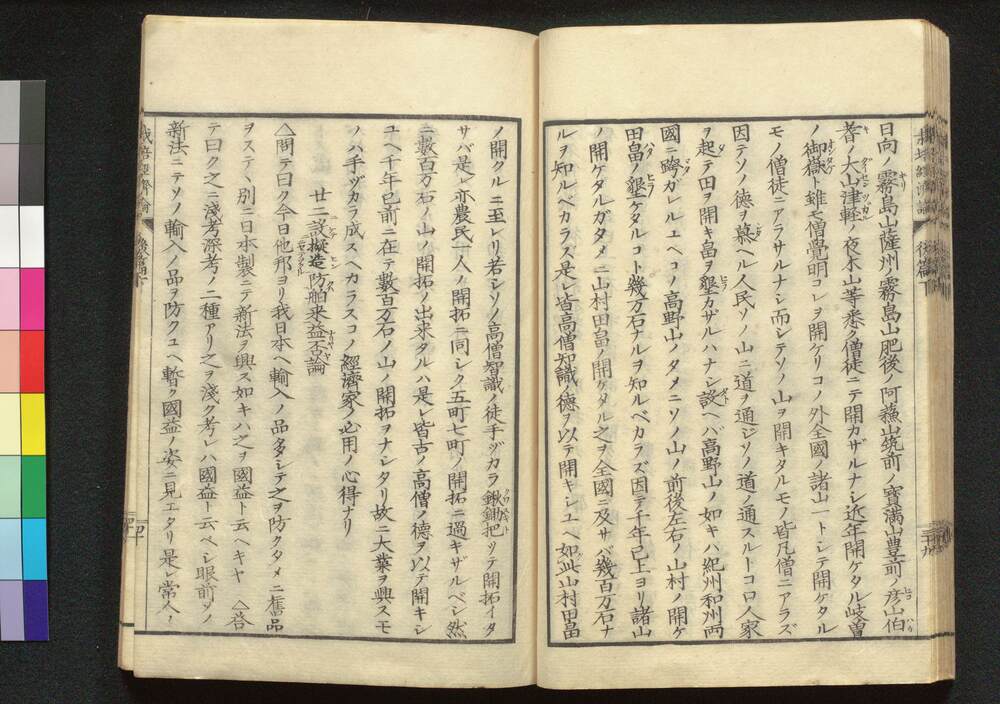 日向ノ霧島山薩州ノ霧島山肥後ノ阿蘓山筑前ノ寶満山豊前ノ彦山伯
耆ノ大山津軽ノ夜氷山等悉ク僧徒ニテ開カザルナシ近年開ケタル岐曽
ノ御嶽ト雖モ僧覺明コレヲ開ケリコノ外全國ノ諸山一トシテ開ケタル
モノ僧徒ニアラサルナシ而シテソノ山ヲ開キタルモノ皆凡僧ニアラズ
因テソノ德ヲ慕ヘル人民ソノ山ニ道ヲ通ジソノ道ノ通スルトコロ人家
ヲ起テ田ヲ開キ畠ヲ墾カザルハナシ設ヘバ高野山ノ如キハ紀州和州両
國ニ跨ガレルユヘコノ高野山ノタメニソノ山ノ前後左右ノ山村ノ開ケ
田畠ノ墾ケタルコト幾万石ナルヲ知ルベカラズ因テ千年已上ヨリ諸山
ノ開ケタルガタメニ山村田畠ノ開ケタル之ヲ全國ニ及サバ幾百万石ナ
ルヲ知ルベカラズ是レ皆高僧知識ノ德ヲ以テ開キシユヘ如此山村田畠
後篇下
三十九
ノ開クルニ至レリ若シソノ高僧智識ノ徒手ヅカラ鍬鋤把ツテ開拓イタ
サバ是レ亦農民一人ノ開拓ニ同シク五町七町ノ開拓ニ過キザルベシ然
ニ數百万石ノ山ノ開拓ノ出来タルハ是レ皆古ノ高僧ノ德ヲ以テ開キシ
ユヘ千年已前ニ在テ數百万石ノ山ノ開拓ヲナシタリ故ニ大業ヲ興スモ
ノハ手ヅカラ成スヘカラスコノ經濟家ノ必用ノ心得ナリ
廿二設擬造防舶来益否論
△問テ曰ク今日他邦ヨリ我日本ヘ輸入ノ品多シテ之ヲ防クタメニ舊品
ヲステ、別ニ日本製ニテ新法ヲ興ス如キハ之ヲ國益ト云ヘキヤ　△答
テ曰ク之ニ淺考深考ノ二種アリ之ヲ淺ク考レハ國益ト云ベシ眼前ソノ
新法ニテソノ輸入ノ品ヲ防クユヘ暫ク國益ノ姿ニ見エタリ是レ常人ノ
四十